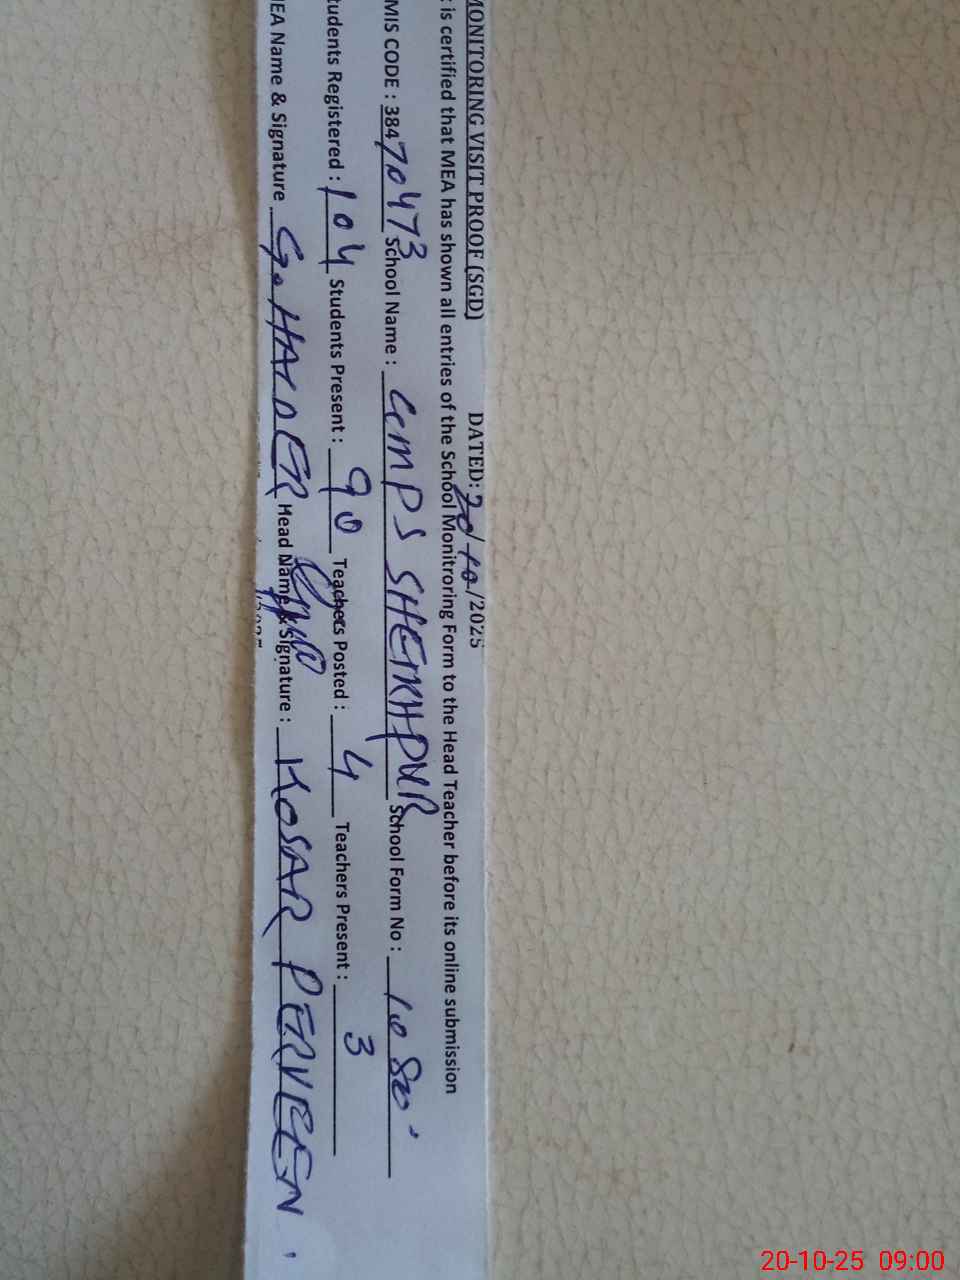 MONITORING VISIT PROOF (SGD) DATED: 20/10/2025
t is certified that MEA has shown all entries of the School Monitroring Form to the Head Teacher before its online submission
MIS CODE : 38470473 School Name : GCMPS SHEIKHPUR School Form No : 1080
tudents Registered : 104 Students Present : 90 Teachers Posted : 4 Teachers Present : 3
IEA Name & Signature G. HAIDER Head Name & Signature : KOSAR PERVEEN
20-10-25 09:00